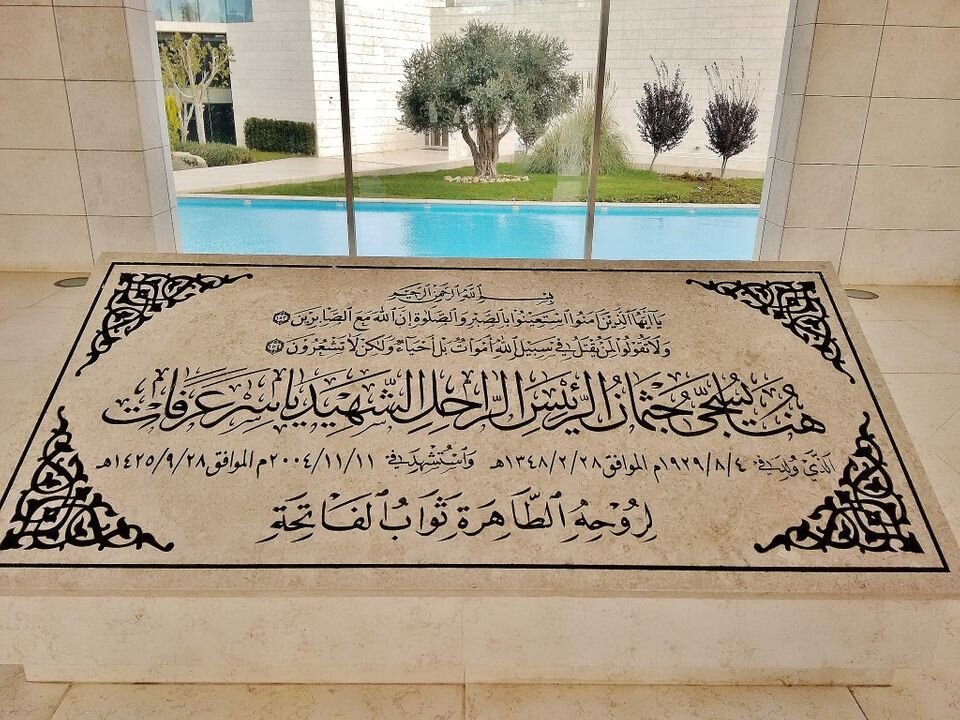 بِسْمِ اللَّهِ الرَّحْمَنِ الرَّحِيمِ
يَا أَيُّهَا الَّذِينَ آمَنُوا اسْتَعِينُوا بِالصَّبْرِ وَالصَّلَاةِ إِنَّ اللَّهَ مَعَ الصَّابِرِينَ ﴿١٥٣﴾
وَلَا تَقُولُوا لِمَنْ يُقْتَلُ فِي سَبِيلِ اللَّهِ أَمْوَاتٌ بَلْ أَحْيَاءٌ وَلَكِنْ لَا تَشْعُرُونَ ﴿١٥٤﴾
هُنَا يُسَجَّى جُثْمَانُ الرَّئِيسِ الرَّاحِلِ الشَّهِيدِ يَاسِرْ عَرَفَات
الَّذِي وُلِدَ فِي: ١٩٢٩/٨/٤م الموافق ١٣٤٨/٢/٢٨هـ وَاسْتُشْهِدَ فِي: ٢٠٠٤/١١/١١م الموافق ١٤٢٥/٩/٢٨هـ
لِرُوحِهِ الطَّاهِرَةِ ثَوَابُ الفَاتِحَةِ